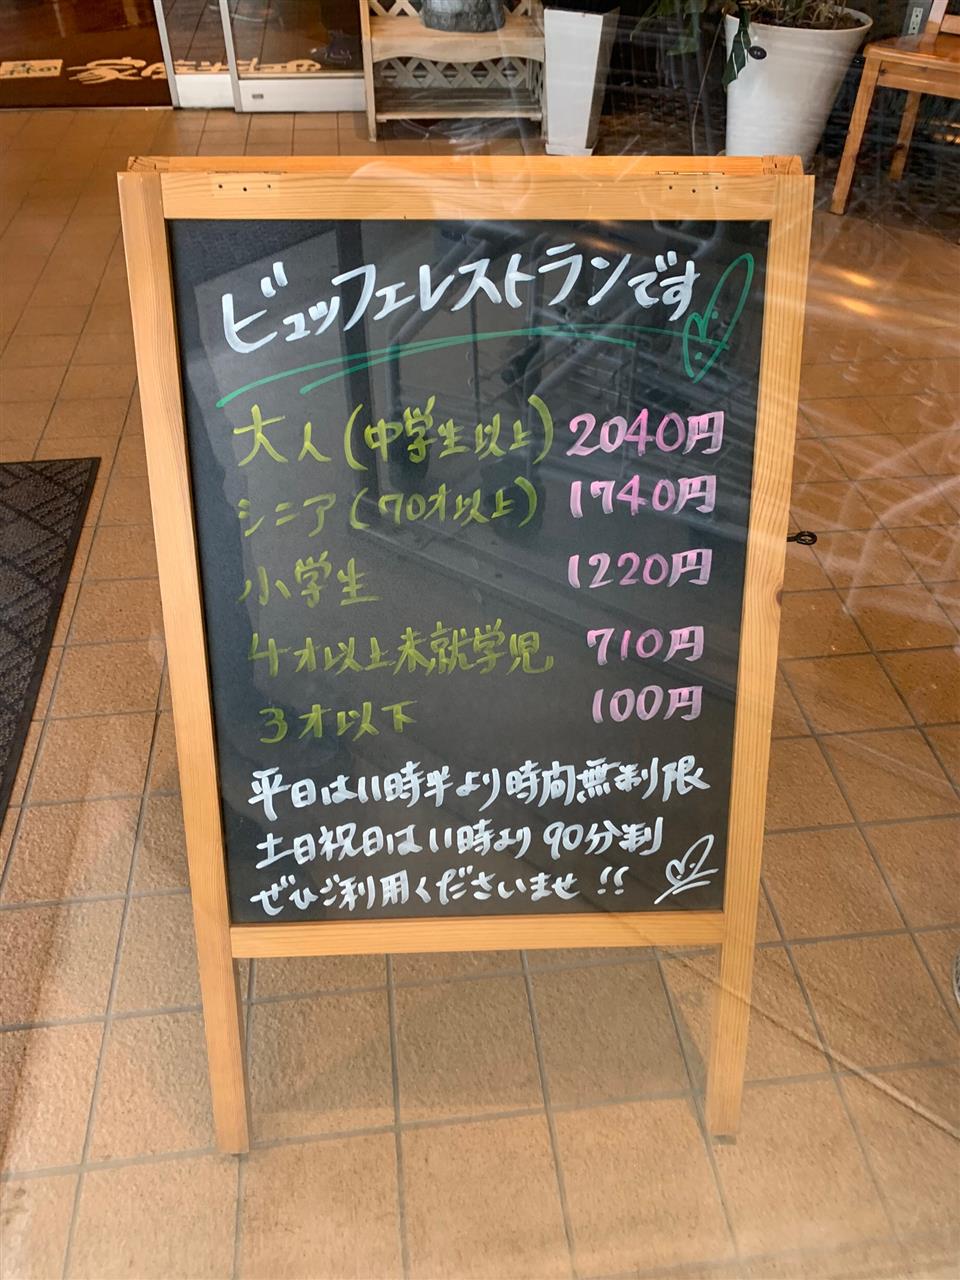 ビュッフェレストランです
大人(中学生以上) 2040円
シニア(70才以上) 1740円
小学生 1220円
4才以上未就学児 710円
3才以下 100円
平日は11時半より時間無制限
土日祝日は11時より90分制
ぜひご利用くださいませ!!